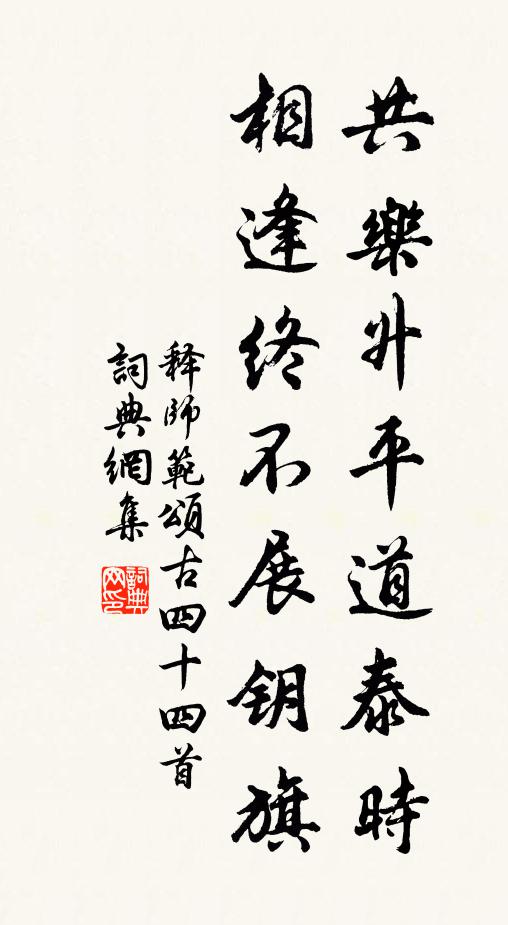 共樂升平道泰時
相逢終不展钥旗
释師範頌古四十四首
詞典網集
詞典
网印